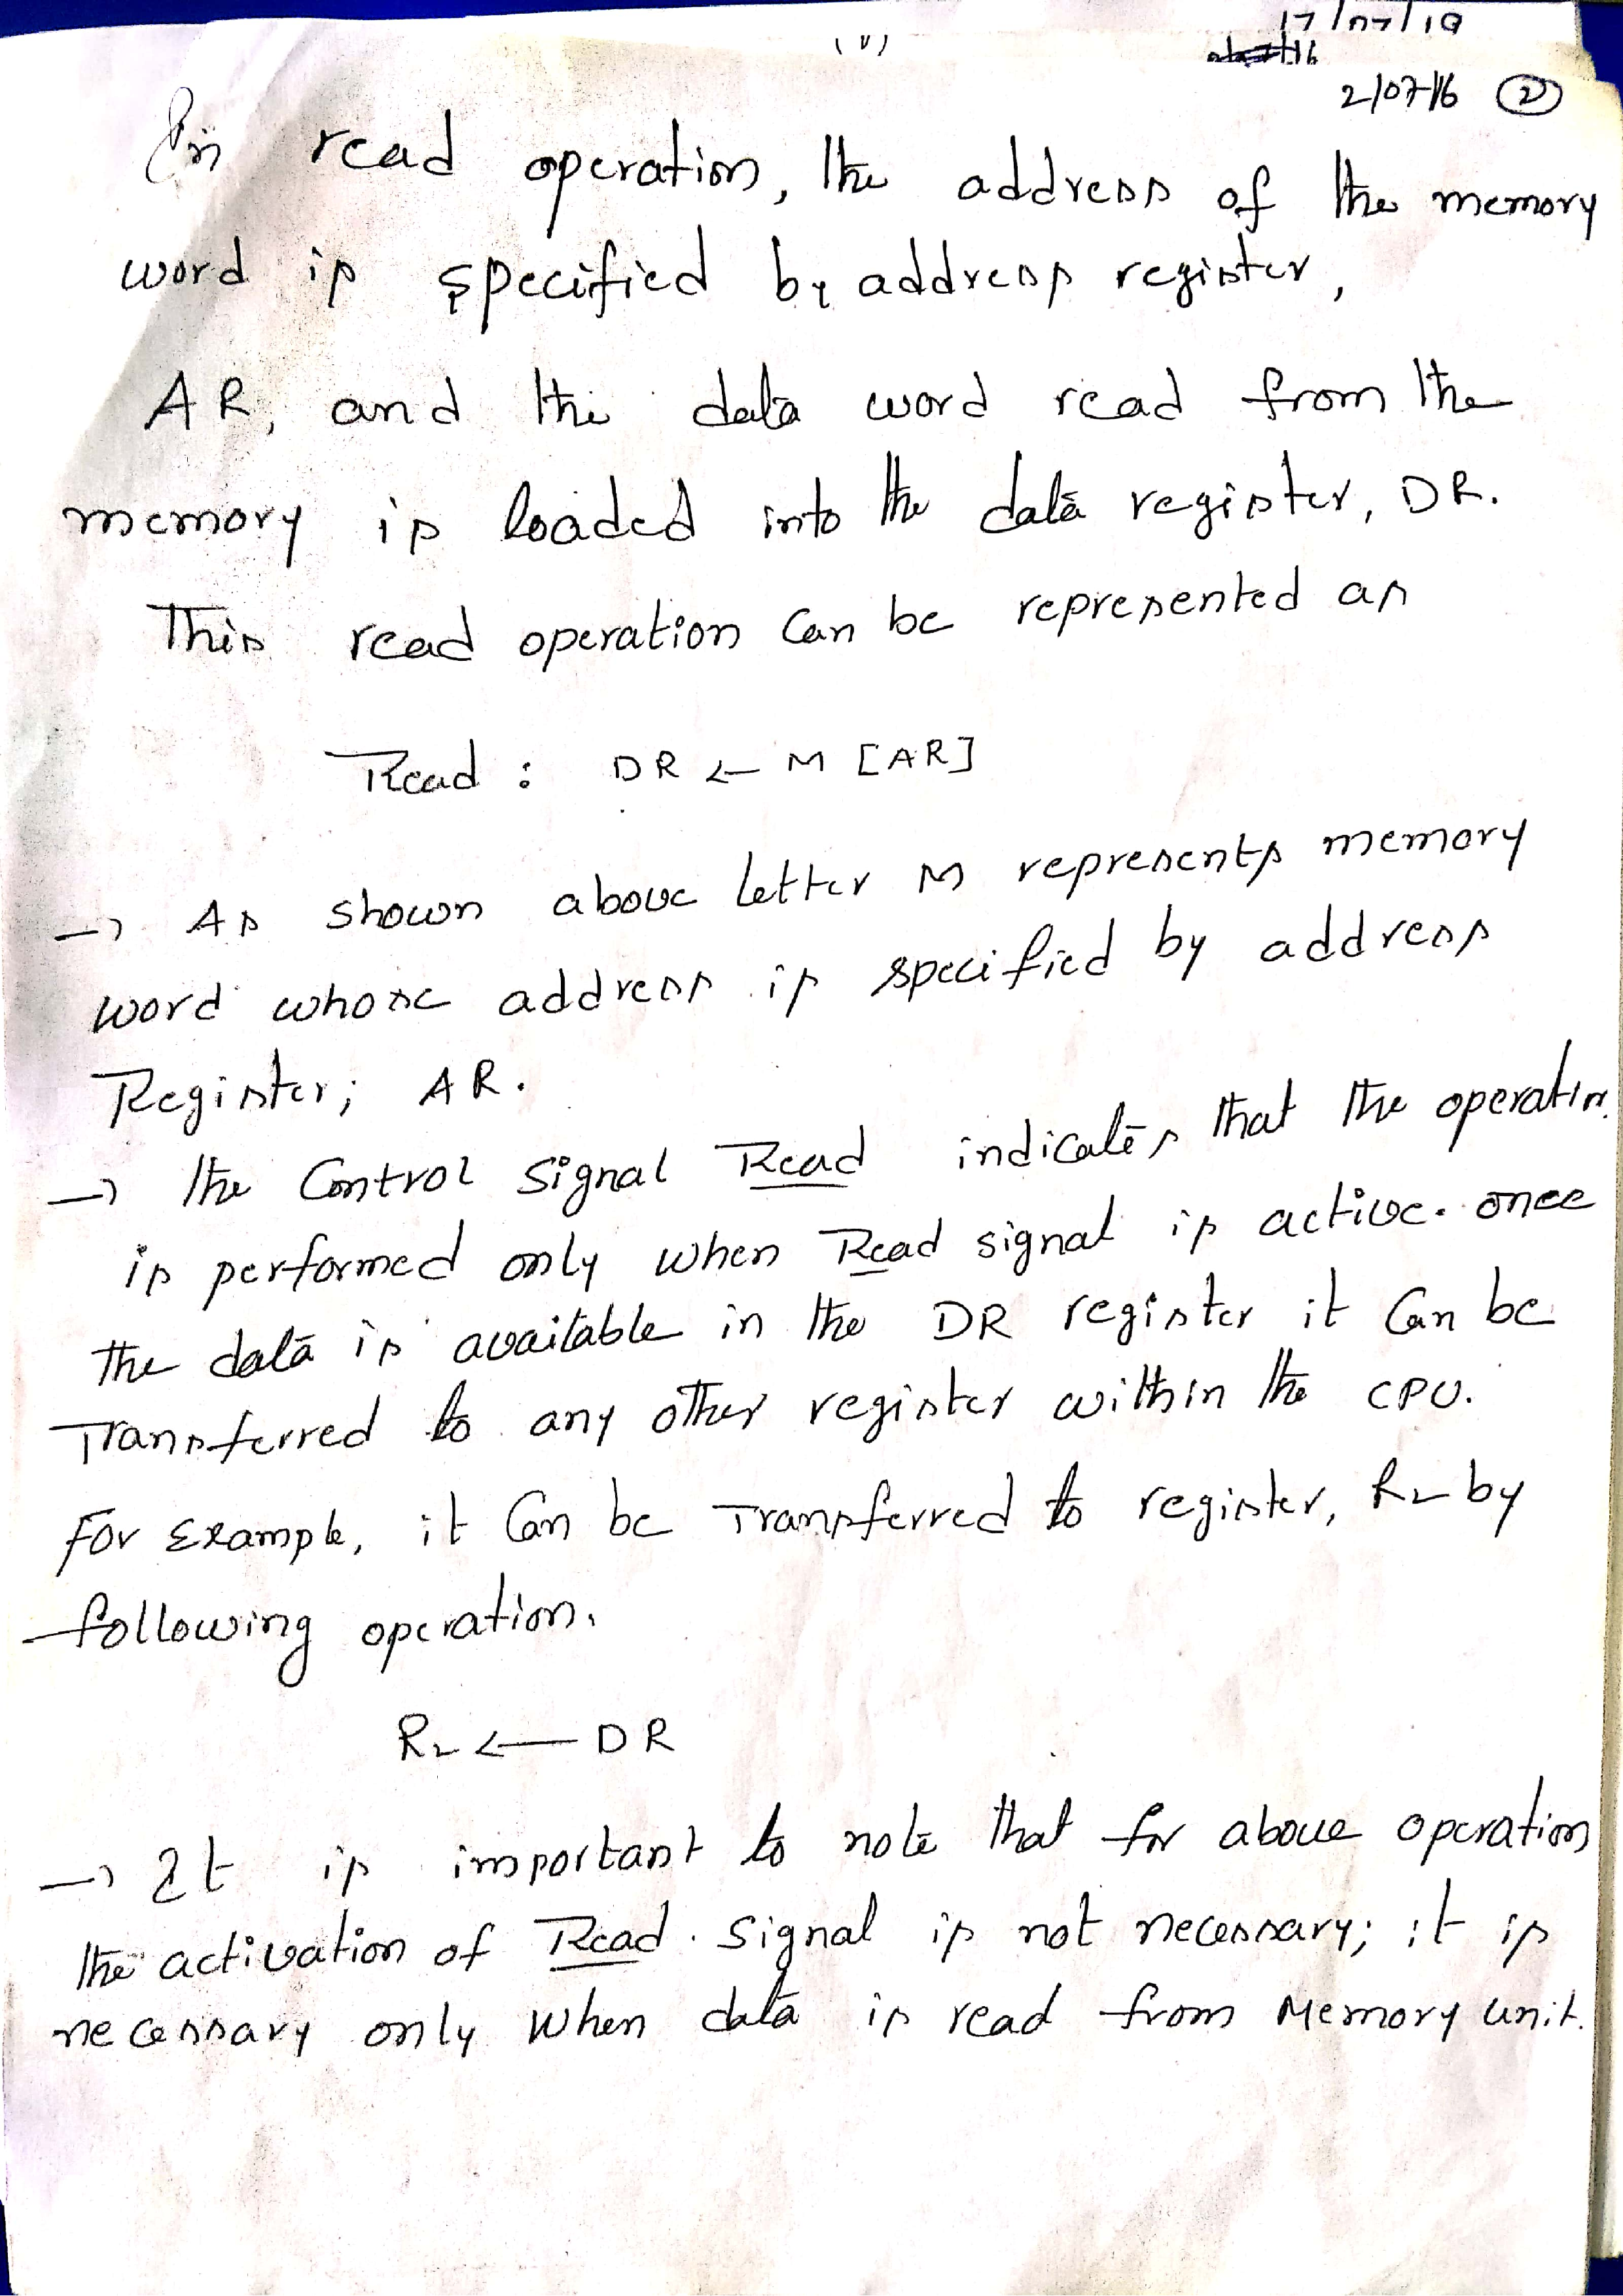 17/07/19
2/07/16 (2)
In read operation, the address of the memory
word is specified by address register,
AR, and the data word read from the
memory is loaded into the data register, DR.
This read operation can be represented as
Read : DR ← M [AR]
→ As shown above letter M represents memory
word whose address is specified by address
Register; AR.
→ the Control Signal Read indicates that the operation
is performed only when Read signal is active. once
the data is available in the DR register it Can be
Transferred to any other register within the CPU.
For Example, it Can be Transferred to register, R2 by
following operation.
R2 ← DR
→ It is important to note that for above operation
the activation of Read Signal is not necessary; it is
necessary only when data is read from Memory unit.